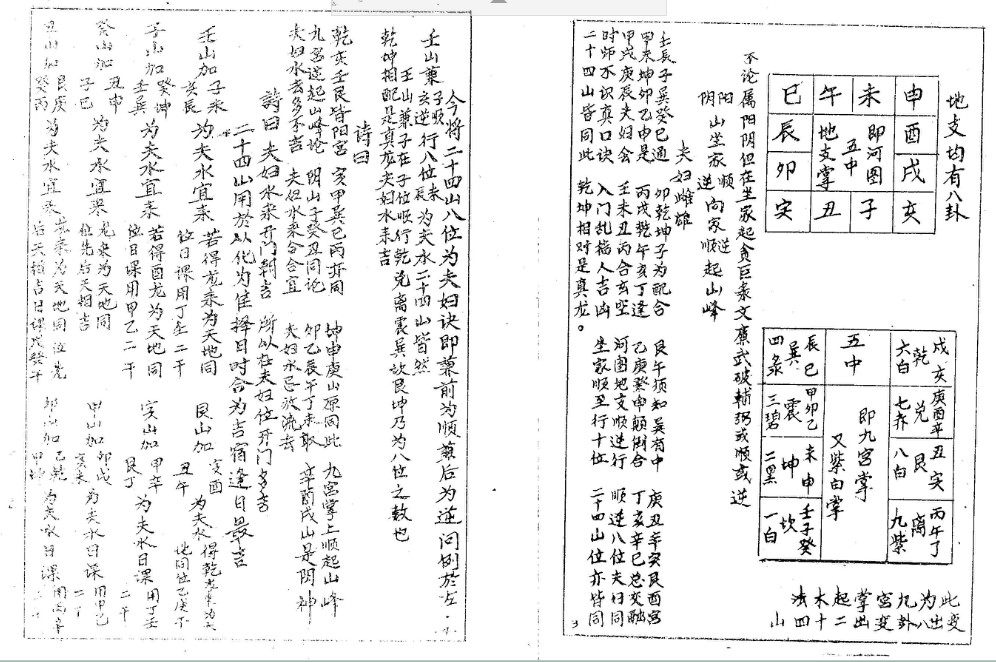 地支均有八卦
申 酉 戌 亥
未 即河图 子
五中
午 地支掌 丑
巳 辰 卯 寅
戌亥 庚酉辛 丑寅 丙午丁
乾 兑 艮 离
六白 七赤 八白 九紫
五中 即九宫掌
又紫白掌
辰巳 甲卯乙 未申 壬子癸
巽 震 坤 坎
四绿 三碧 二黑 一白
此变
为出
九八
宫卦
掌变
起出
木二
法十
四
山
不论属阳阴但在坐家起贪巨禄文廉武破辅弼或顺或逆
阳山坐家顺 向家逆 起山峰
阴 逆 顺
夫妇雌雄
壬辰子巽癸巳通 卯乾坤子为配合 艮午须知吴有中 庚丑辛寅艮酉宫
甲未坤卯乙申是 丙戌乾午亥丁逢 乙庚癸申颠倒合 丁亥辛巳总交融
甲戌庚辰夫妇会 壬未丑丙合玄空 河图地支顺逆行 顺逆八位夫妇同
时师不识真口诀 入门乱指人吉凶 坐家顺至行十位 二十四山位亦皆同
二十四山皆同此 乾坤相对是真龙。
3
今将二十四山八位为夫妇诀即兼前为顺兼后为逆问例於左
壬山兼子顺 亥逆 行八位 未 辰 为夫水二十四山皆然
壬山兼子在子位顺行乾兑离震巽坎艮坤乃为八位之数也
乾坤相配是真龙夫妇水来吉
诗曰
乾亥壬艮皆阳宫 亥甲巽巳丙亦同 坤申庚山原同此 九宫掌上顺起山峰
九宫逆起山峰论 阴山子癸丑同论 卯乙辰午丁未取 辛酉戌山是阴神
夫妇水去多不吉 夫妇水来合合宜 夫妇水忌放流去
詩曰 夫妇水来开门朝吉 所以在夫妇位开门多吉
二十四山用於以化为佳择日时合为吉宿逢日最吉
壬山加 子未 亥辰 为夫水宜来 若得龙来为天地同
位日课用丁壬二干
子山加 癸坤 壬巽 为夫水宜来 若得酉龙为天地同
位日课用甲乙二干
癸山加 丑申 子巳 为夫水宜来 龙来为天地同
位先后天相吉
丑山加 艮庚 癸丙 为夫水宜来
艮山加 寅酉 丑午 为夫水
寅山加 甲辛 艮丁 为夫水日课 用丁壬
二干
甲山加 卯戌 寅未 为夫水日课 用甲乙
二干
卯山加 乙乾 甲坤 为夫水日课